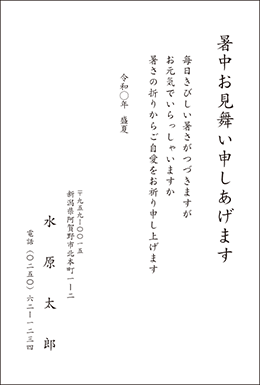 暑中お見舞い申しあげます
毎日きびしい暑さがつづきますが
お元気でいらっしゃいますか
暑さの折りからご自愛をお祈り申し上げます
令和〇年 盛夏
〒九五九−〇〇一五
新潟県阿賀野市北本町一−二
水原太郎
電話（〇二五〇）六二−一二三四